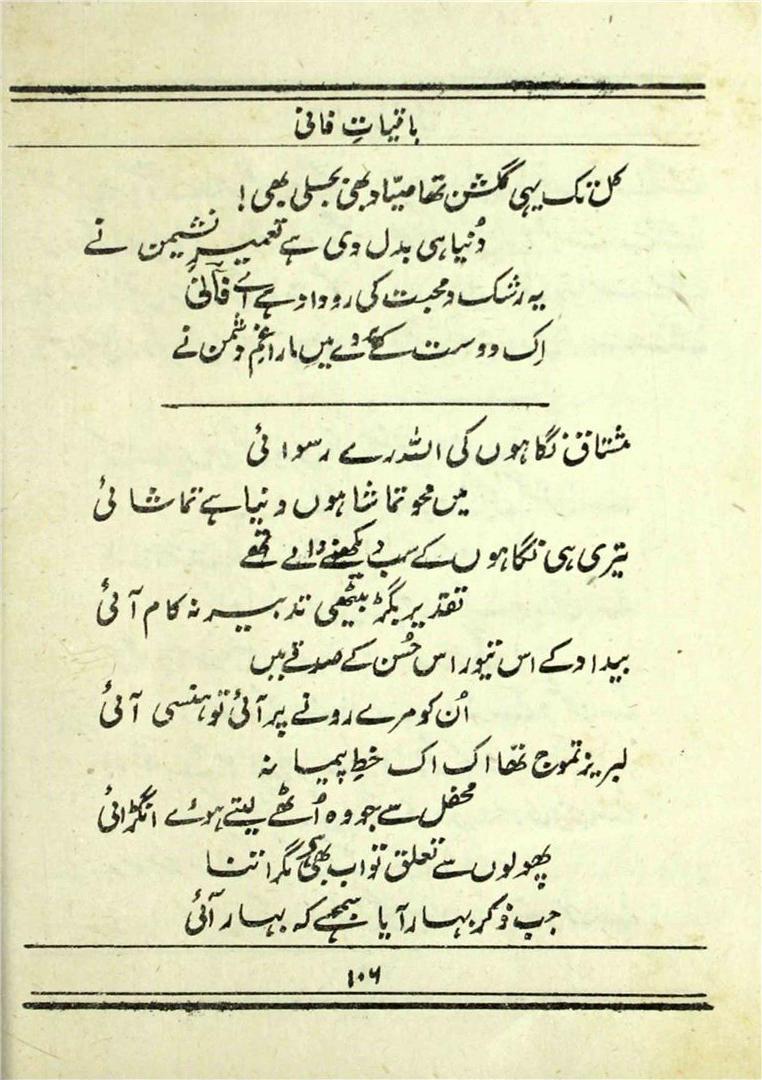 باقیاتِ فانی
کل تک یہی گلشن تھا صیّاد بھی بجلی بھی!
دُنیا ہی بدل دی ہے تعمیرِ نشیمن نے
یہ رشک و محبت کی روداد ہے اے فانیؔ
اِک دوست کے پردے میں مارا غمِ دشمن نے
مشتاق نگاہوں کی اللہ رے رسوائی
میں محوِ تماشا ہوں دنیا ہے تماشائی
تیری ہی نگاہوں کے سب دیکھنے والے تھے
تقدیر بگڑ بیٹھی تدبیر نہ کام آئی
بیداد کے اس تیور اس حُسن کے صدقے میں
اُن کو مرے رونے پر آئی تو ہنسی آئی
لبریز تموج تھا اک اک خطِ پیمانہ
محفل سے جو وہ اُٹھے لیتے ہوئے انگڑائی
پھولوں سے تعلق تو اب بھی ہے مگر اتنا
جب ذکر بہار آیا سمجھے کہ بہار آئی
۱۰۶